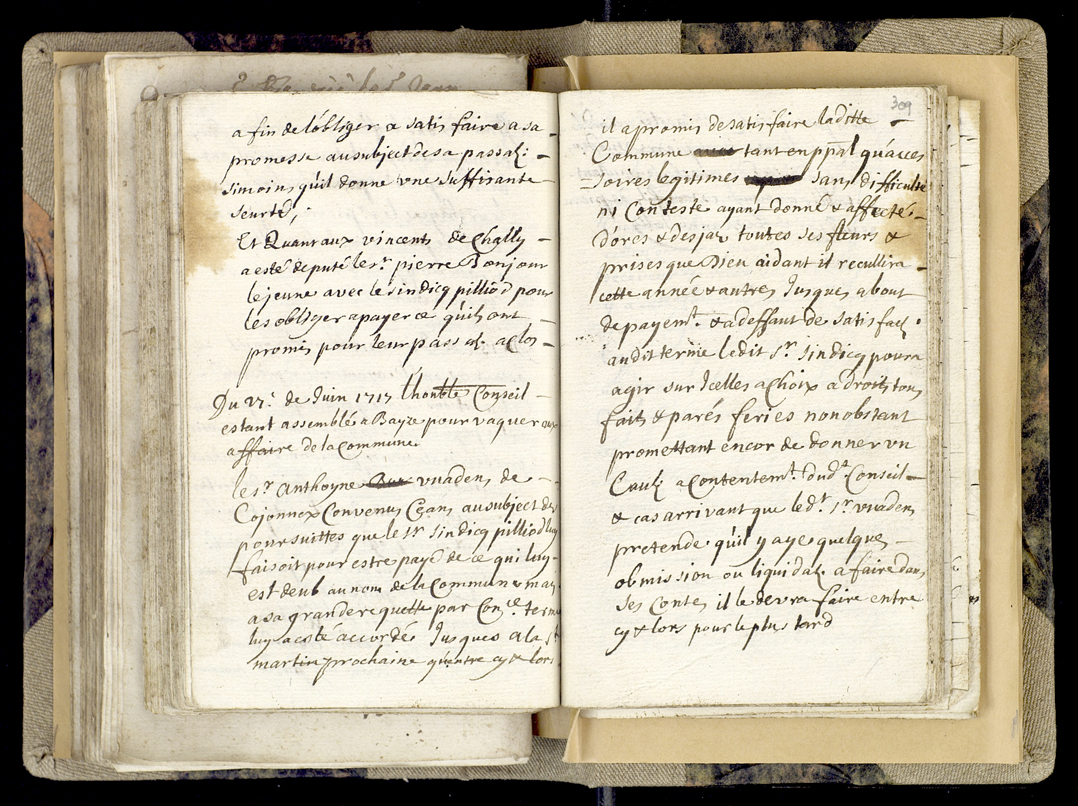 afin de lobliger a satisfaire a sa
promesse au subject de sa passa͠o :
simoins quil donne vne suffisante
seurté,
Et Quant aux vincents de Chally
a esté deputé le sr. pierre Bonjour
le jeune avec le sindicq pilliod pour
les obliger a payer ce quils ont
promis pour leur passa͠o.
Du vie. de Juin 1717 Lhonble Conseil
estant assemblé a Bayze pour vaquer aux
affaire de la Commune.
le sr. Anthoyne vuadens de
Cojonnex Convenus Ceans au subject des
poursuittes que le sr. sindicq pilliod luy
faisoit pour estre payé de ce qui luy
est deub au nom de la Commune mais
a sa grande requette par Con.ce terme
luy a esté accordé Jusques a la st
martin prochaine qu'entre cy & lors
309
il a promis de satisfaire laditte
Commune tant en ppal qu'acces
soires legitimes sans difficulté
ni Conteste ayant donné & affecté
d'ores & desjaz toutes ses fleurs &
prises que Dieu aidant il recullira
cette année & autres Jusques a bout
de payemt. & a deffaut de satisfac͠o.
audit terme ledit sr. sindicq poura
agir sur Icelles a Choix a droits tous
faits & parés feries nonobstant
promettant encor de donner vn
Cauõ a Contentemt. dudt. Conseil
& cas arrivant que ledt. sr. vuadens
pretende quil y aye quelques
obmission ou liquida͠o. a faire dans
ses Contes il le devra faire entre
cy & lors pour le plus tard